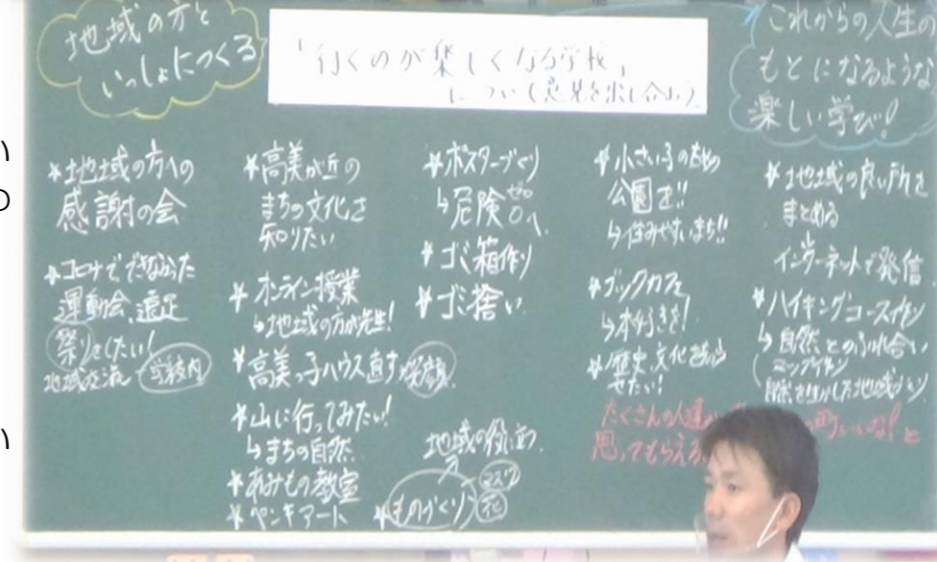 地域の方と
いっしょにつくる
「行くのが楽しくなる学校」
について(意見を出し合おう)。
これからの人生の
もとになるような
楽しい学び!
*地域の方への
感謝の会
*コロナでできなかった
運動会、遠足
祭りをしたい!
地域交流 学校内
*高美が丘の
まちの文化を
知りたい
*オンライン授業
↳地域の方が先生!
*高美っ子ハウス直す 笑顔
*山に行ってみたい!
↳まちの自然
*あみもの教室
*ペンキアート
*ポスターづくり
↳危険ゼロへ
*ゴミ箱作り
*ゴミ拾い
地域の役に立つ
*ものづくり
マスク
花
*小さい子のための
公園を!!
↳住みやすいまち!!
*ブックカフェ
↳本好きを!
*歴史、文化を
せたい!
*地域の良い所を
まとめる
インターネットで発信
*ハイキングコース作り
↳自然とのふれ合い
マップ作り
自然を生かした地域づくり
たくさんの人達
町いいな!と
思ってもらえる